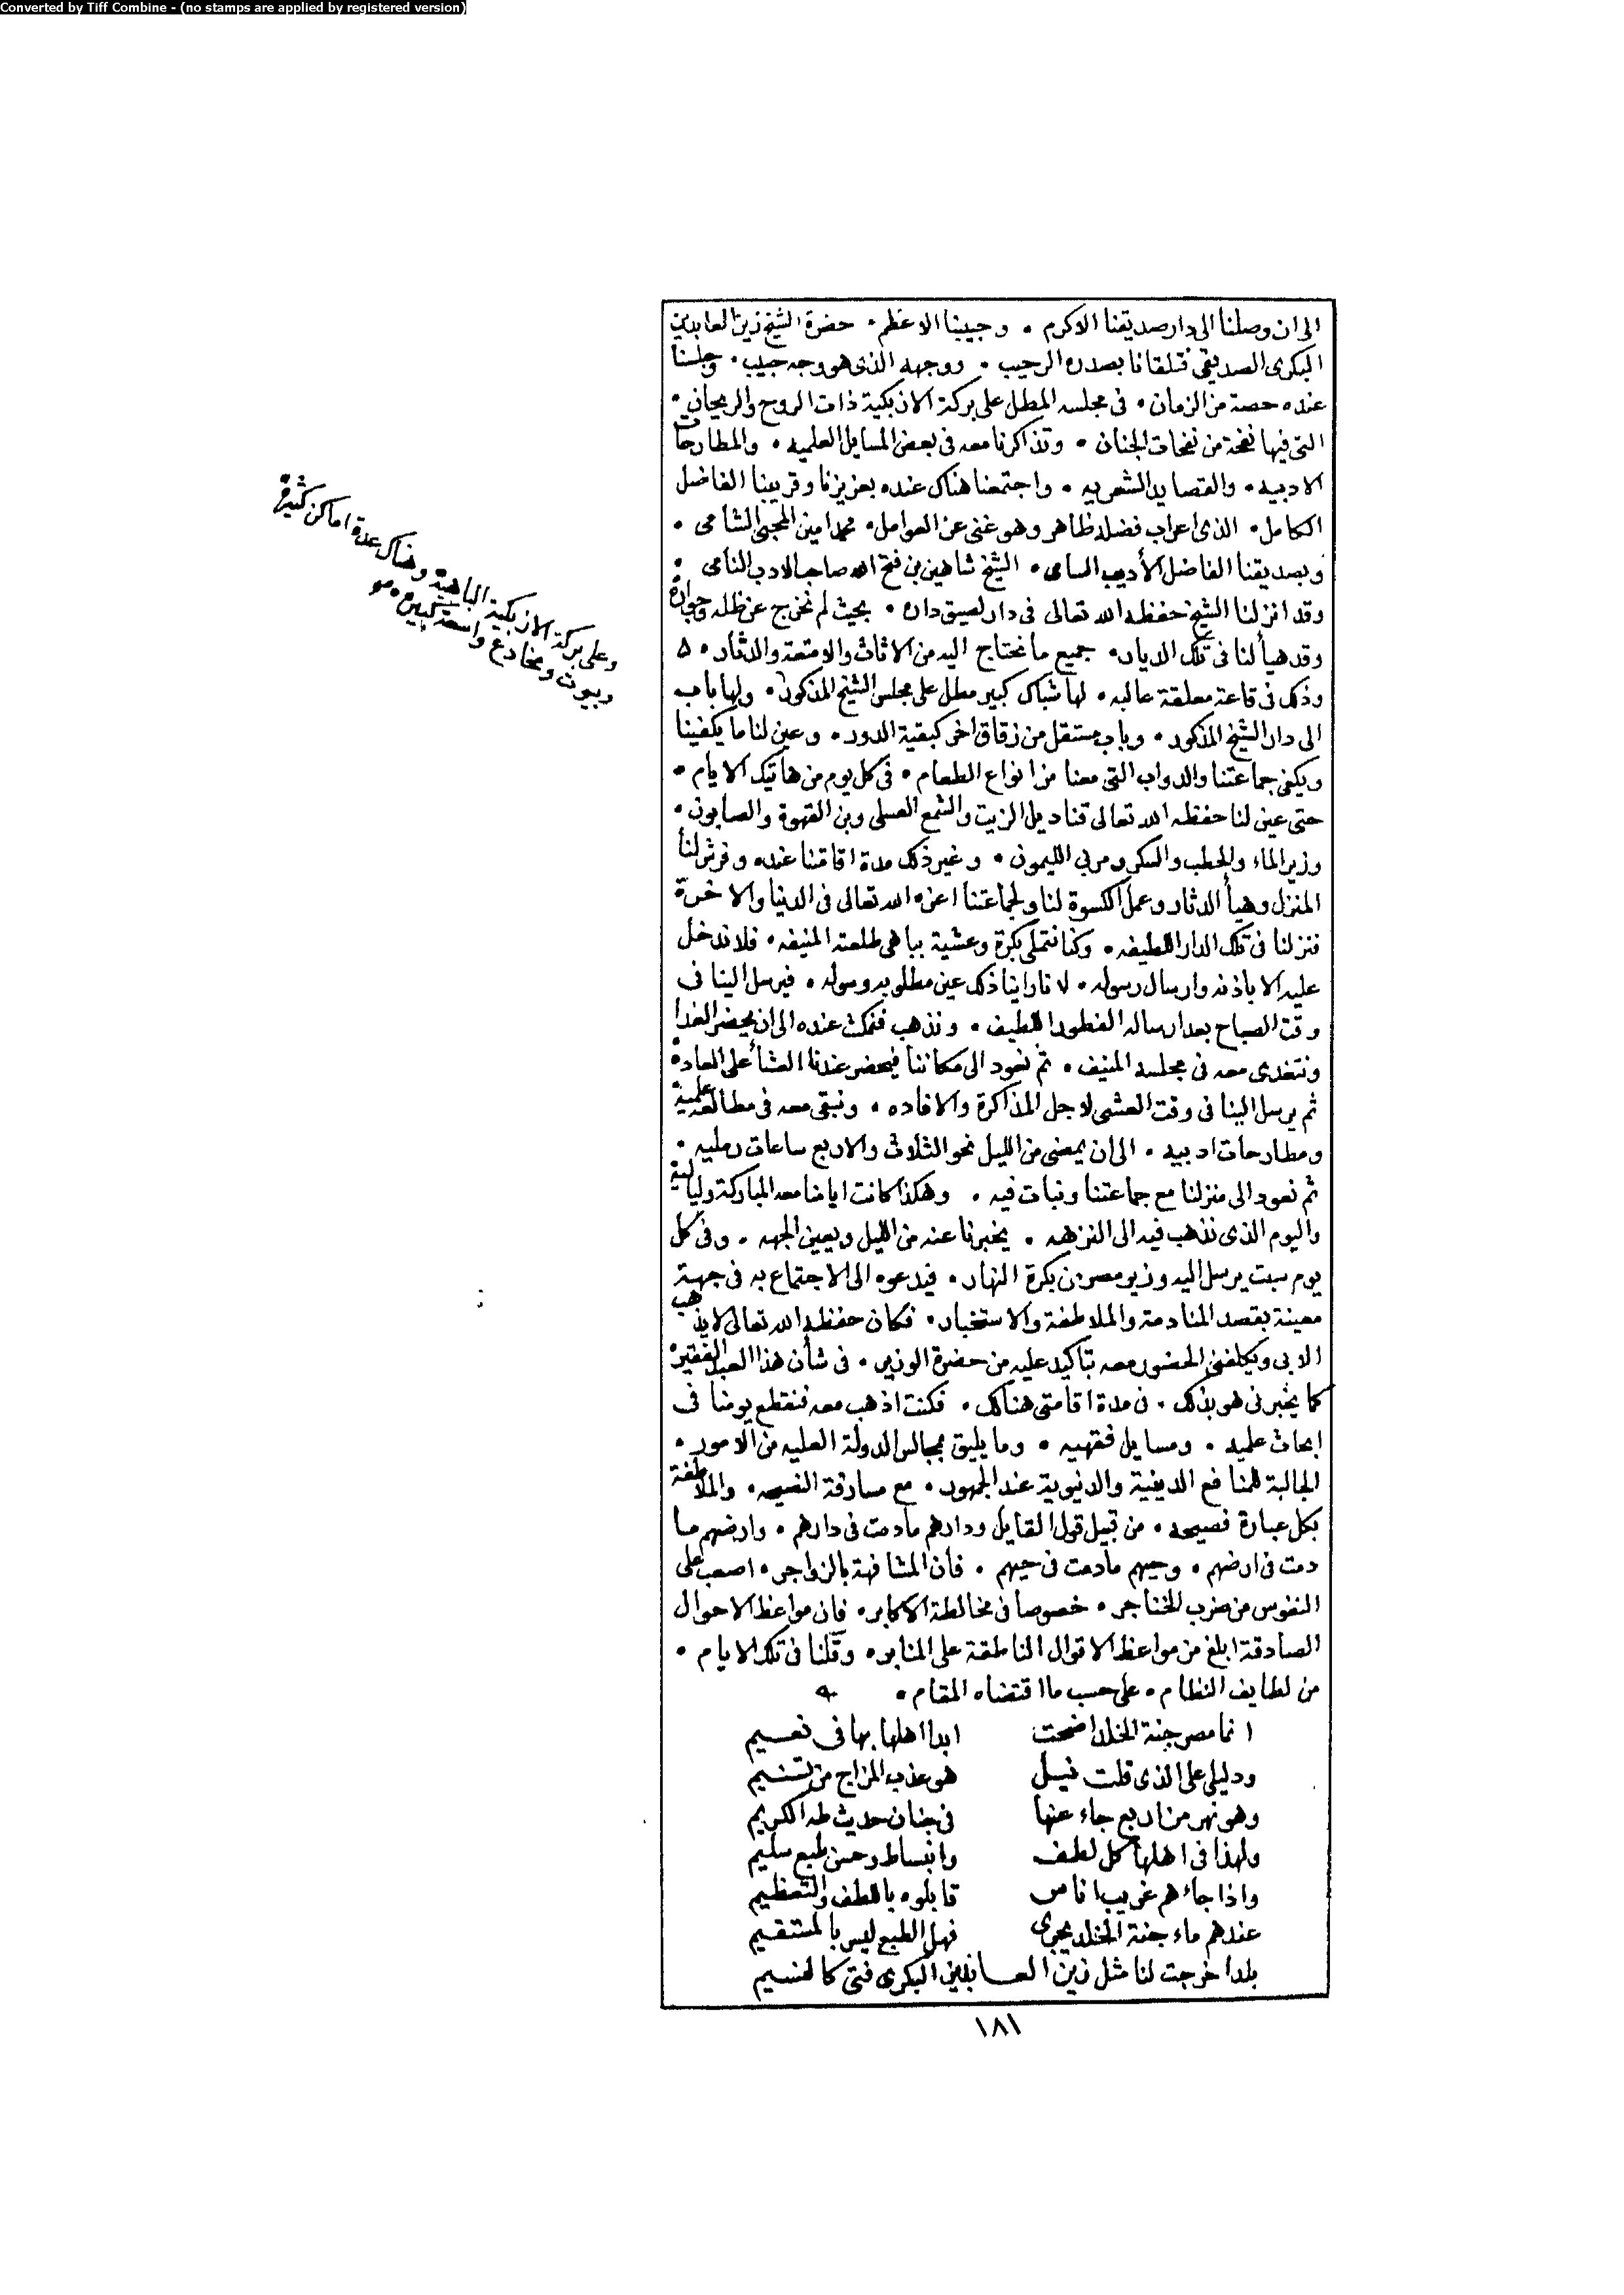 Converted by Tiff Combine - (no stamps are applied by registered version)
الى ان وصلنا الى دار صديقنا الاكرم . وحبيبنا الاعظم . حضرة الشيخ زين العابدين
البكرى الصديقى فتلقانا بصدره الرحيب . ووجهه الذى هو وجه حبيب . وجلسنا
عنده حصة من الزمان . فى مجلسه المطل على بركة الازبكية ذات الروح والريحان .
التى فيها نفحة من نفحات الجنان . وتذاكرنا معه فى بعض المسايل العلميه . والمطارحات
الادبيه . والقصايد الشعريه . واجتمعنا هناك عنده بعزيزنا وقريبنا الفاضل
الكامل . الذى اعراب فضله ظاهر وهو غنى عن العوامل . محمد امين المحبى الشامى .
وبصديقنا الفاضل الأديب السامى . الشيخ شاهين بن فتح الله صاحب الادب النامى .
وقد انزلنا الشيخ حفظه الله تعالى فى دار لصيق داره . بحيث لم نخرج عن ظله وجواره
وقد هيأ لنا فى تلك الديار . جميع ما نحتاج اليه من الاثاث والامتعة والدثار . ۵
وذلك فى قاعة معلقة عاليه . لها شباك كبير مطل على مجلس الشيخ المذكور . ولها باب
الى دار الشيخ المذكور . وباب مستقل من زقاق اخر كبقية الدور . وعين لنا ما يكفينا
ويكفى جماعتنا والدواب التى معنا من انواع الطعام . فى كل يوم من هاتيك الايام .
حتى عين لنا حفظه الله تعالى قناديل الزيت والشمع العسلى وبن القهوة والصابون .
وزير الماء والحطب والسكر ومربى الليمون . وغير ذلك مدة اقامتنا عنده وفرش لنا
المنزل وهيأ الدثار وعمل الكسوة لنا ولجماعتنا اعزه الله تعالى فى الدنيا والاخرة
فنزلنا فى تلك الدار اللطيفه . وكنا نتملى بكرة وعشية بباهى طلعته المنيفه . فلا ندخل
عليه الا باذنه وارسال رسوله . لانا راينا ذلك عين مطلوبه وسوله . فيرسل الينا فى
وقت الصباح بعد ارساله الفطور اللطيف . ونذهب فنمكث عنده الى ان يحضر الغدا
ونتغدى معه فى مجلسه المنيف . ثم نعود الى مكاننا فيحضر عندنا العشأ على العادة
ثم يرسل الينا فى وقت العشى لاجل المذاكرة والافاده . ونبقى معه فى مطالعة علمية
ومطارحات ادبيه . الى ان يمضى من الليل نحو الثلاث والاربع ساعات رمليه .
ثم نعود الى منزلنا مع جماعتنا ونبات فيه . وهكذا كانت ايامنا معه المباركة ولياليه
واليوم الذى نذهب فيه الى النزهه . يخبرنا عنه من الليل ويعين الجهه . وفى كل
يوم سبت يرسل اليه وزير مصر من بكرة النهار . فيدعوه الى الاجتماع به فى جهة
معينة بقصد المنادمة والملاطفة والاستخبار . فكان حفظه الله تعالى لا يذهب
الا بى ويكلفنى الحضور معه بتأكيد عليه من حضرة الوزير . فى شأن هذا العبد الفقير
كما يخبرنى هو بذلك . فى مدة اقامتى هنالك . فكنت اذهب معه فنقطع يومنا فى
ابحاث علميه . ومسايل فقهيه . وما يليق بمجالس الدولة العليه من الامور .
الجالبة للمنافع الدينية والدنيوية عند الجمهور . مع مسارقة النصيحه . والملاطفة
بكل عبارة فصيحه . من قبيل قول القايل ودارهم ما دمت فى دارهم . وارضهم ما
دمت فى ارضهم . وحيهم ما دمت فى حيهم . فان المشافهة بالزواجر . اصعب على
النفوس من ضرب الخناجر . خصوصا فى مخالطة الاكابر . فان مواعظ الاحوال
الصادقة ابلغ من مواعظ الاقوال الناطقة على المنابر . وقلنا فى تلك الايام .
من لطايف النظام . على حسب ما اقتضاه المقام .
انما مصر جنة الخلد اضحت ابدا اهلها بها فى نعيم
ودليلى على الذى قلت نيل هو عذب المزاج من تسنيم
وهو نهر من اربع جاء عنها فى جنان حديث طه الكريم
ولهذا فى اهلها كل لطف وانبساط وحسن طبع سليم
واذا جاءهم غريب اناس قابلوه باللطف والتعظيم
عندهم ماء جنة الخلد يجرى فهل الطبع ليس بالمستقيم
بلد اخرجت لنا مثل زين العـــابدين البكرى فتى كالنسيم
١٨١
وعلى بركة الازبكية الباهية وهناك عدة اماكن كثيرة
وبيوت ومخادع واسعة كبيره